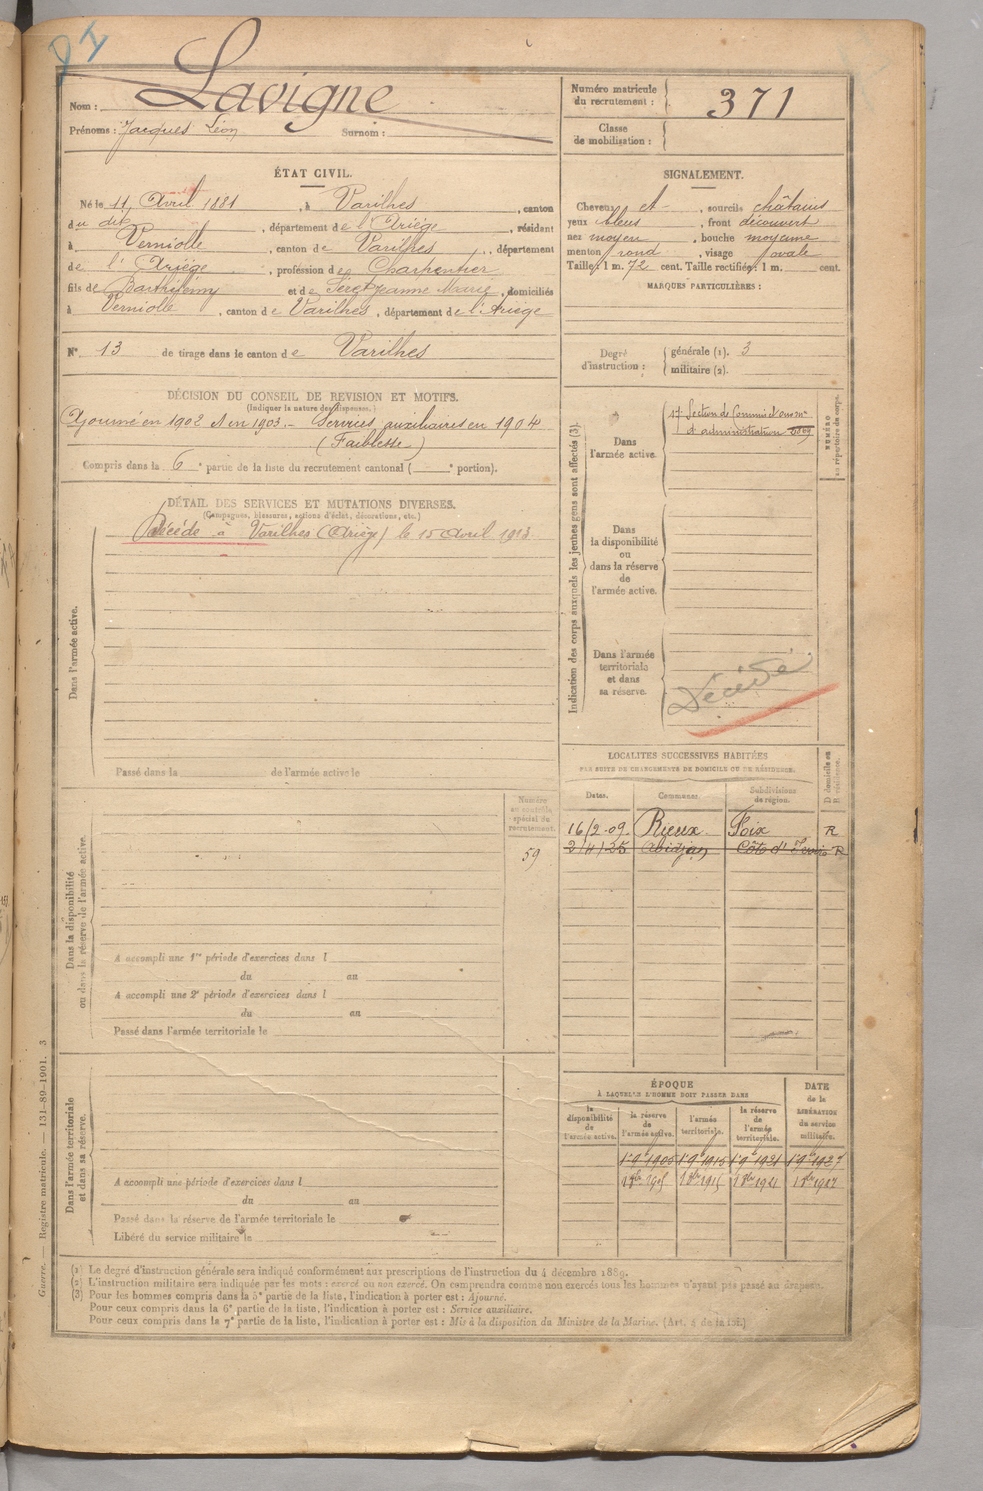 Nom : Lavigne
Prénoms : Jacques Léon Surnom :
Numéro matricule du recrutement : 371
Classe de mobilisation :
ÉTAT CIVIL.
Né le 11 Avril 1881, à Varilhes, canton
du dit, département de l'Ariège, résidant
à Verniolle, canton de Varilhes, département
de l'Ariège, profession de Charpentier
fils de Barthélémy et de Jeanne Marie, domiciliés
à Verniolle, canton de Varilhes, département de l'Ariège
N° 13 de tirage dans le canton de Varilhes
SIGNALEMENT.
Cheveux et sourcils châtains
yeux bleus, front découvert
nez moyen, bouche moyenne
menton rond, visage ovale
Taille 1 m. 72 cent. Taille rectifiée 1 m. cent.
MARQUES PARTICULIÈRES :
Degré d'instruction : générale (1). 3
militaire (2).
DÉCISION DU CONSEIL DE REVISION ET MOTIFS.
(Indiquer la nature des dispenses.)
Ajourné en 1902 et en 1903. - Services auxiliaires en 1904
(Faiblesse)
Compris dans la 6e partie de la liste du recrutement cantonal ( e portion).
DÉTAIL DES SERVICES ET MUTATIONS DIVERSES.
(Campagnes, blessures, actions d'éclat, décorations, etc.)
Décédé à Varilhes (Ariège) le 15 Avril 1913
Dans l'armée active.
Passé dans la de l'armée active le
Indication des corps auxquels les jeunes gens sont affectés (3).
NUMÉRO au répertoire du corps.
Dans l'armée active.
17e Section de Commis et ouvriers
d'administration
Dans la disponibilité ou dans la réserve de l'armée active.
Dans l'armée territoriale et dans sa réserve.
Décédé
LOCALITÉS SUCCESSIVES HABITÉES
PAR SUITE DE CHANGEMENTS DE DOMICILE OU DE RÉSIDENCE.
D domicile ou R résidence.
Dates. Communes. Subdivisions de région.
16/2-09. Rieux Foix R
2/4/25 Abidjan Côte d'Ivoire R
Numéro au contrôle spécial du recrutement.
59
Dans la disponibilité ou dans la réserve de l'armée active.
A accompli une 1re période d'exercices dans l
du au
A accompli une 2e période d'exercices dans l
du au
Passé dans l'armée territoriale le
Dans l'armée territoriale et dans sa réserve.
A accompli une période d'exercices dans l
du au
Passé dans la réserve de l'armée territoriale le
Libéré du service militaire le
ÉPOQUE
À LAQUELLE L'HOMME DOIT PASSER DANS
DATE de la LIBÉRATION du service militaire.
la disponibilité de l'armée active. la réserve de l'armée active. l'armée territoriale. la réserve de l'armée territoriale.
1 9e 1905 1 9e 1915 1 9e 1921 1 9e 1927
(1) Le degré d'instruction générale sera indiqué conformément aux prescriptions de l'instruction du 4 décembre 1889.
(2) L'instruction militaire sera indiquée par les mots : exercé ou non exercé. On comprendra comme non exercés tous les hommes n'ayant pas passé au drapeau.
(3) Pour les hommes compris dans la 5e partie de la liste, l'indication à porter est : Ajourné.
Pour ceux compris dans la 6e partie de la liste, l'indication à porter est : Service auxiliaire.
Pour ceux compris dans la 7e partie de la liste, l'indication à porter est : Mis à la disposition du Ministre de la Marine. (Art. 4 de la loi.)
Guerre. — Registre matricule. — 131-89-1901. 3